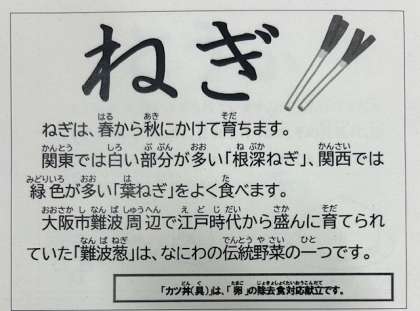 ねぎ
ねぎは、春から秋にかけて育ちます。
関東では白い部分が多い「根深ねぎ」、関西では
緑色が多い「葉ねぎ」をよく食べます。
大阪市難波周辺で江戸時代から盛んに育てられ
ていた「難波葱」は、なにわの伝統野菜の一つです。
「カツ丼(具)」は、「卵」の除去食対応献立です。